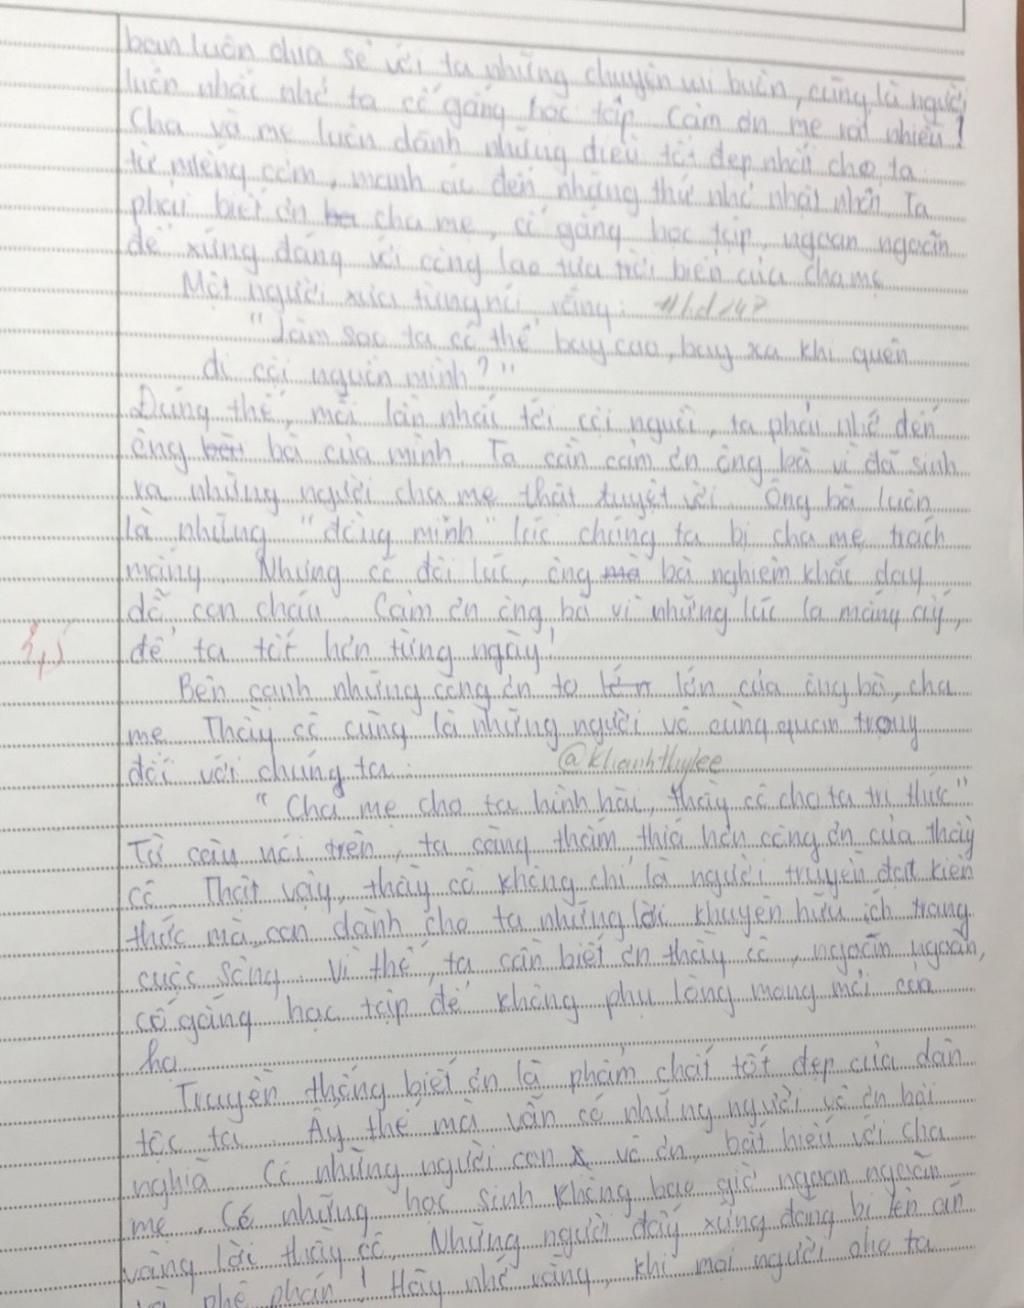 bạn luôn chia sẻ với ta những chuyện vui buồn, cũng là người
luôn nhắc nhở ta cố gắng học tập. Cảm ơn mẹ rất nhiều!
Cha và mẹ luôn dành những điều tốt đẹp nhất cho ta
từ miếng cơm, manh áo đến những thứ nhỏ nhặt nhất. Ta
phải biết ơn cha mẹ, cố gắng học tập, ngoan ngoãn
để xứng đáng với công lao tựa trời biển của cha mẹ
Một người xưa từng nói rằng:
"Làm sao ta có thể bay cao, bay xa khi quên
đi cội nguồn mình?"
Đúng thế, mỗi lần nhắc tới cội nguồn, ta phải nhớ đến
ông bà của mình. Ta cần cảm ơn ông bà vì đã sinh
ra những người cha mẹ thật tuyệt vời. Ông bà luôn
là những "đồng minh" lúc chúng ta bị cha mẹ trách
mắng. Nhưng có đôi lúc, ông bà nghiêm khắc dạy
dỗ con cháu. Cảm ơn ông bà vì những lúc la mắng ấy,
3,5
để ta tốt hơn từng ngày!
Bên cạnh những công ơn to lớn của ông bà, cha
mẹ. Thầy cô cũng là những người vô cùng quan trọng
đối với chúng ta.
@khanhthylee
"Cha mẹ cho ta hình hài, thầy cô cho ta tri thức"
Từ câu nói trên, ta càng thấm thía hơn công ơn của thầy
cô. Thật vậy, thầy cô không chỉ là người truyền đạt kiến
thức mà con dành cho ta những lời khuyên hữu ích trong
cuộc sống. Vì thế, ta cần biết ơn thầy cô, ngoan ngoãn,
cố gắng học tập để không phụ lòng mong mỏi của
họ.
Truyền thống biết ơn là phẩm chất tốt đẹp của dân
tộc ta. Ấy thế mà vẫn có những người vô ơn bội
nghĩa. Có những người con vô ơn, bất hiếu với cha
mẹ. Có những học sinh không bao giờ ngoan ngoãn
vâng lời thầy cô. Những người đấy xứng đáng bị lên án
và phê phán! Hãy nhớ rằng, khi mọi người cho ta